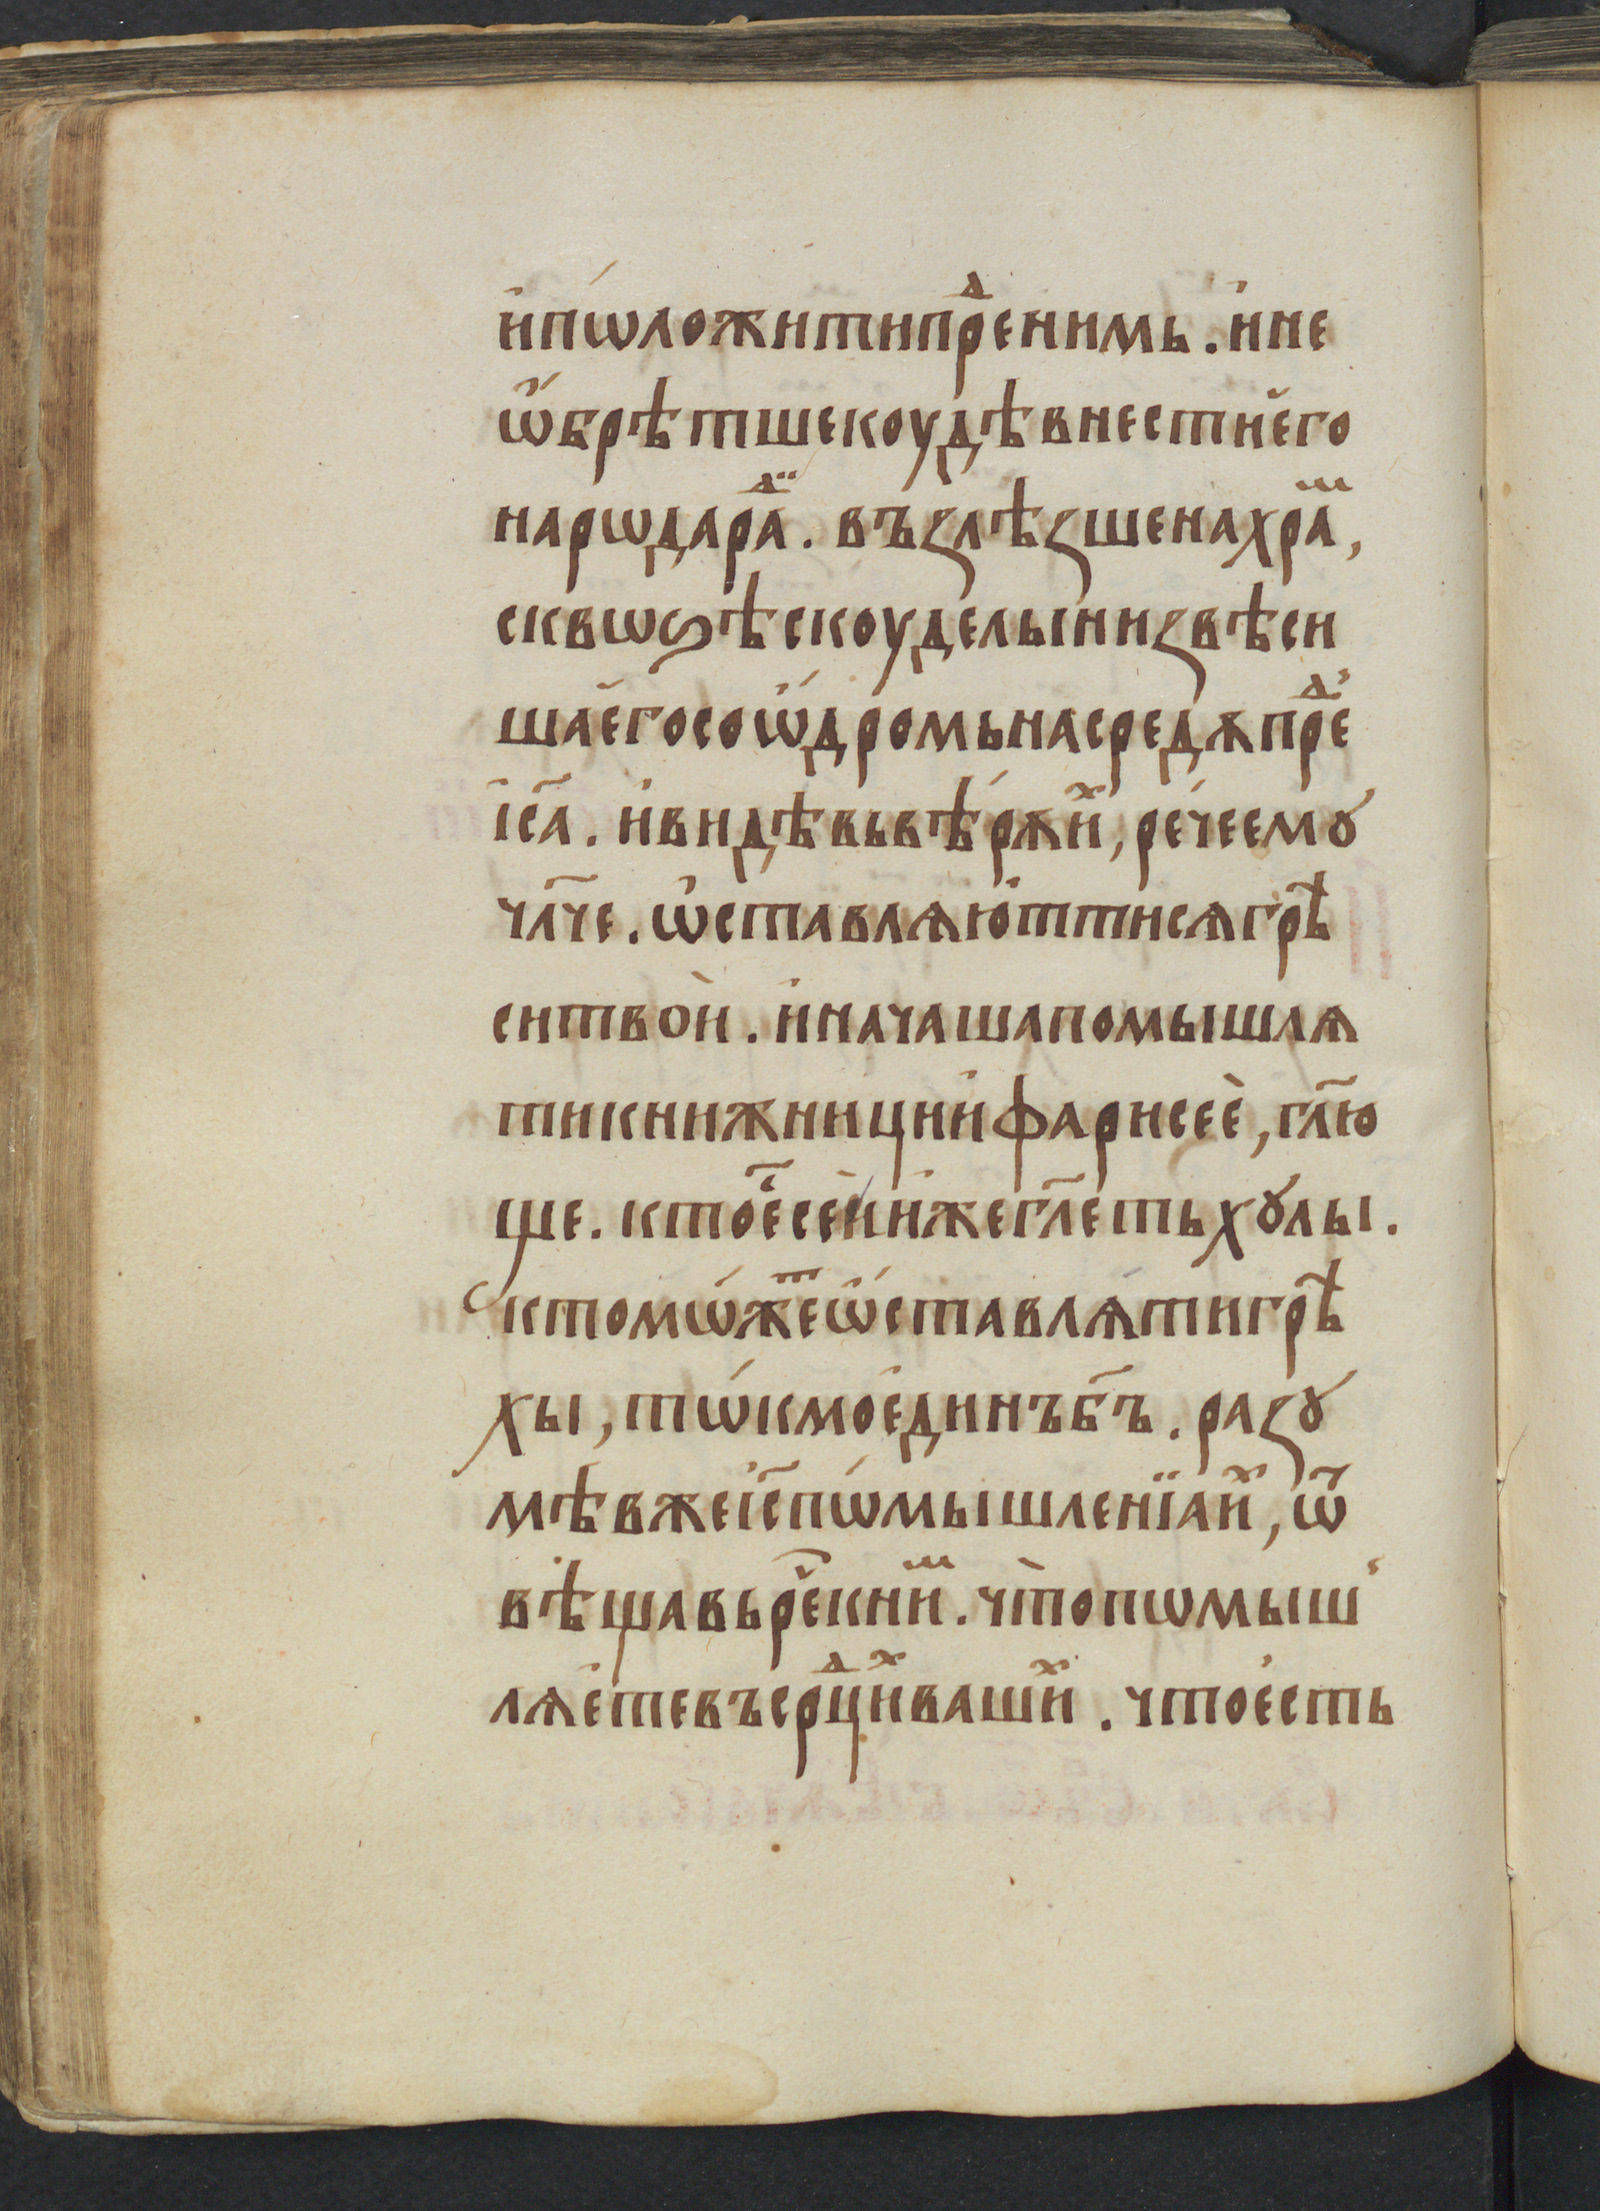 и҆пѡ́ложитипрⷣенимь. и҆не
ѡ҆́брѣтшекоудѣвнестие҆го
нарѡдараⷣ. въꙁлѣꙁшенахраⷨ,
сквѡѕѣскоуделыиꙁвѣси
шае҆госоѡ҆́дромьнасредѧпрⷣе
і҆с҃а. и҆видѣвьвѣ́рѫиⷯ, ре́чеемꙋ
чл҃че. ѡ҆ставлѧю҆ттисѧгрѣ
ситвоѝ. и҆начашапомышлѧ
тикнижниции҆фарисеѐ, гл҃ю
ще. ктоеⷭ҇се́и҆и҆жегл҃етьхꙋлы.
ктомѡ́жеⷮѡ҆́ставлѧ́тигрѣ
хы, тѡ́кмое҆динъб҃ъ. раꙁꙋ
мѣвжеі҆с҃пѡ́мышленїа҆иⷯ, ѿ
вѣщавьре҃книⷨ. что̀пѡмыш
лѧ́е҆тевъсрⷣциⷯвашиⷯ. чтое҆сть